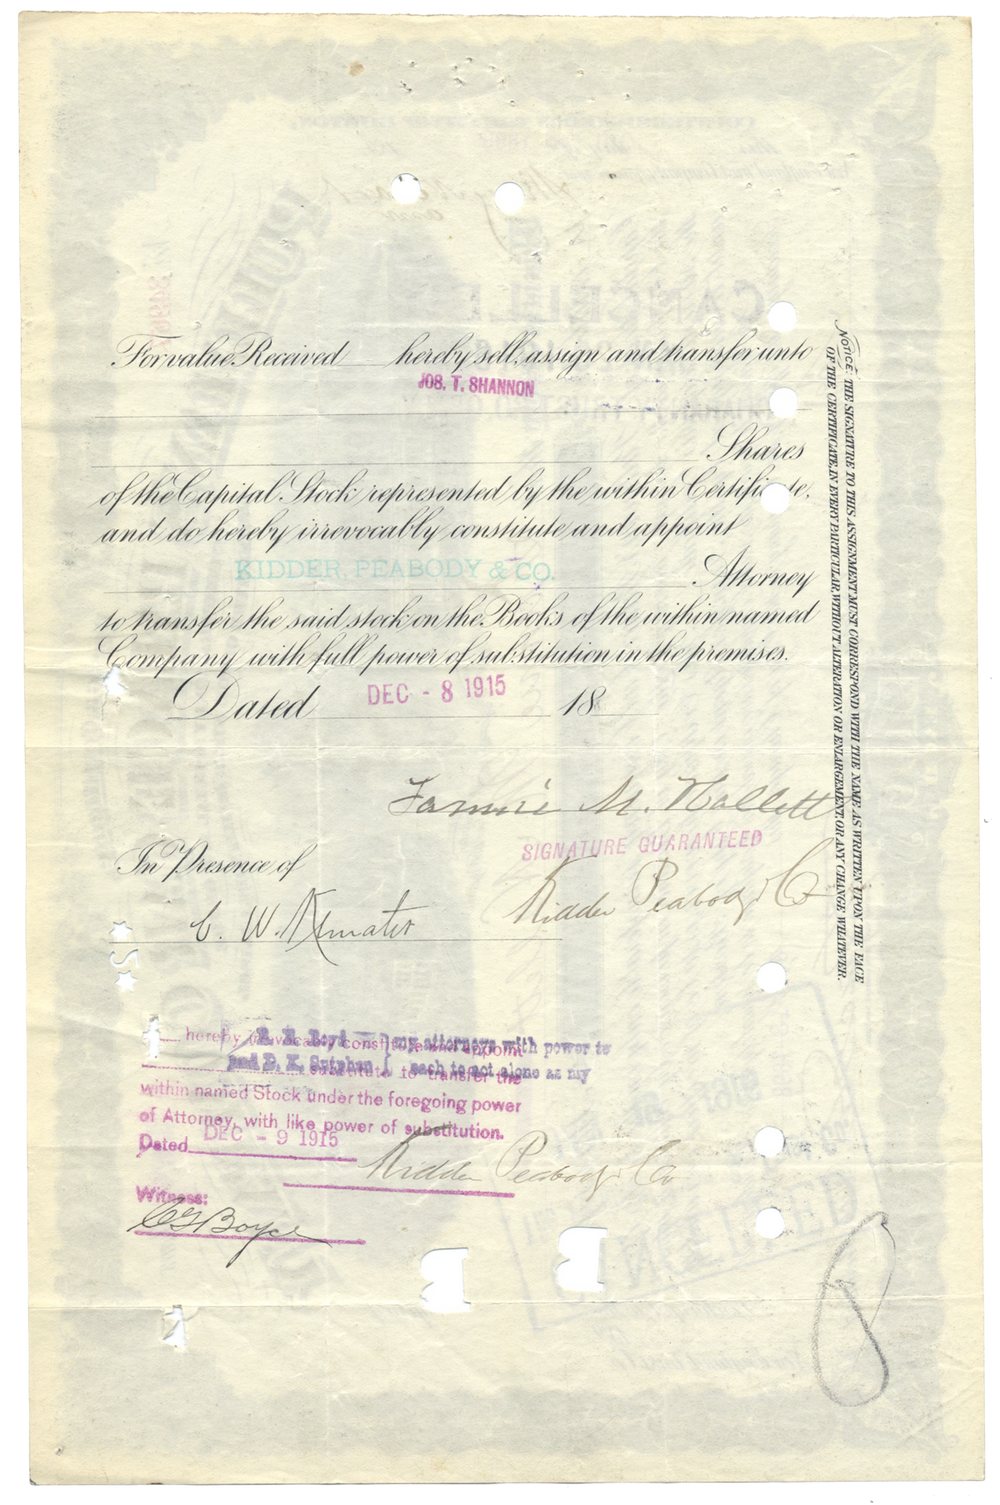 For value Received hereby sell, assign and transfer unto
JOS. T. SHANNON
Shares
of the Capital Stock represented by the within Certificate,
and do hereby irrevocably constitute and appoint
KIDDER, PEABODY & CO. Attorney
to transfer the said stock on the Books of the within named
Company with full power of substitution in the premises.
Dated DEC - 8 1915 18
Fannie M. Hallett
SIGNATURE GUARANTEED
Kidder Peabody & Co
In Presence of
C. W.
hereby irrevocably constitute and appoint
and D. K. my attorneys with power to
each to act alone as my
substitute to transfer the
within named Stock under the foregoing power
of Attorney, with like power of substitution.
Dated DEC - 9 1915
Kidder Peabody & Co
Witness:
C G Boyce
NOTICE: THE SIGNATURE TO THIS ASSIGNMENT MUST CORRESPOND WITH THE NAME AS WRITTEN UPON THE FACE
OF THE CERTIFICATE, IN EVERY PARTICULAR, WITHOUT ALTERATION OR ENLARGEMENT OR ANY CHANGE WHATEVER.